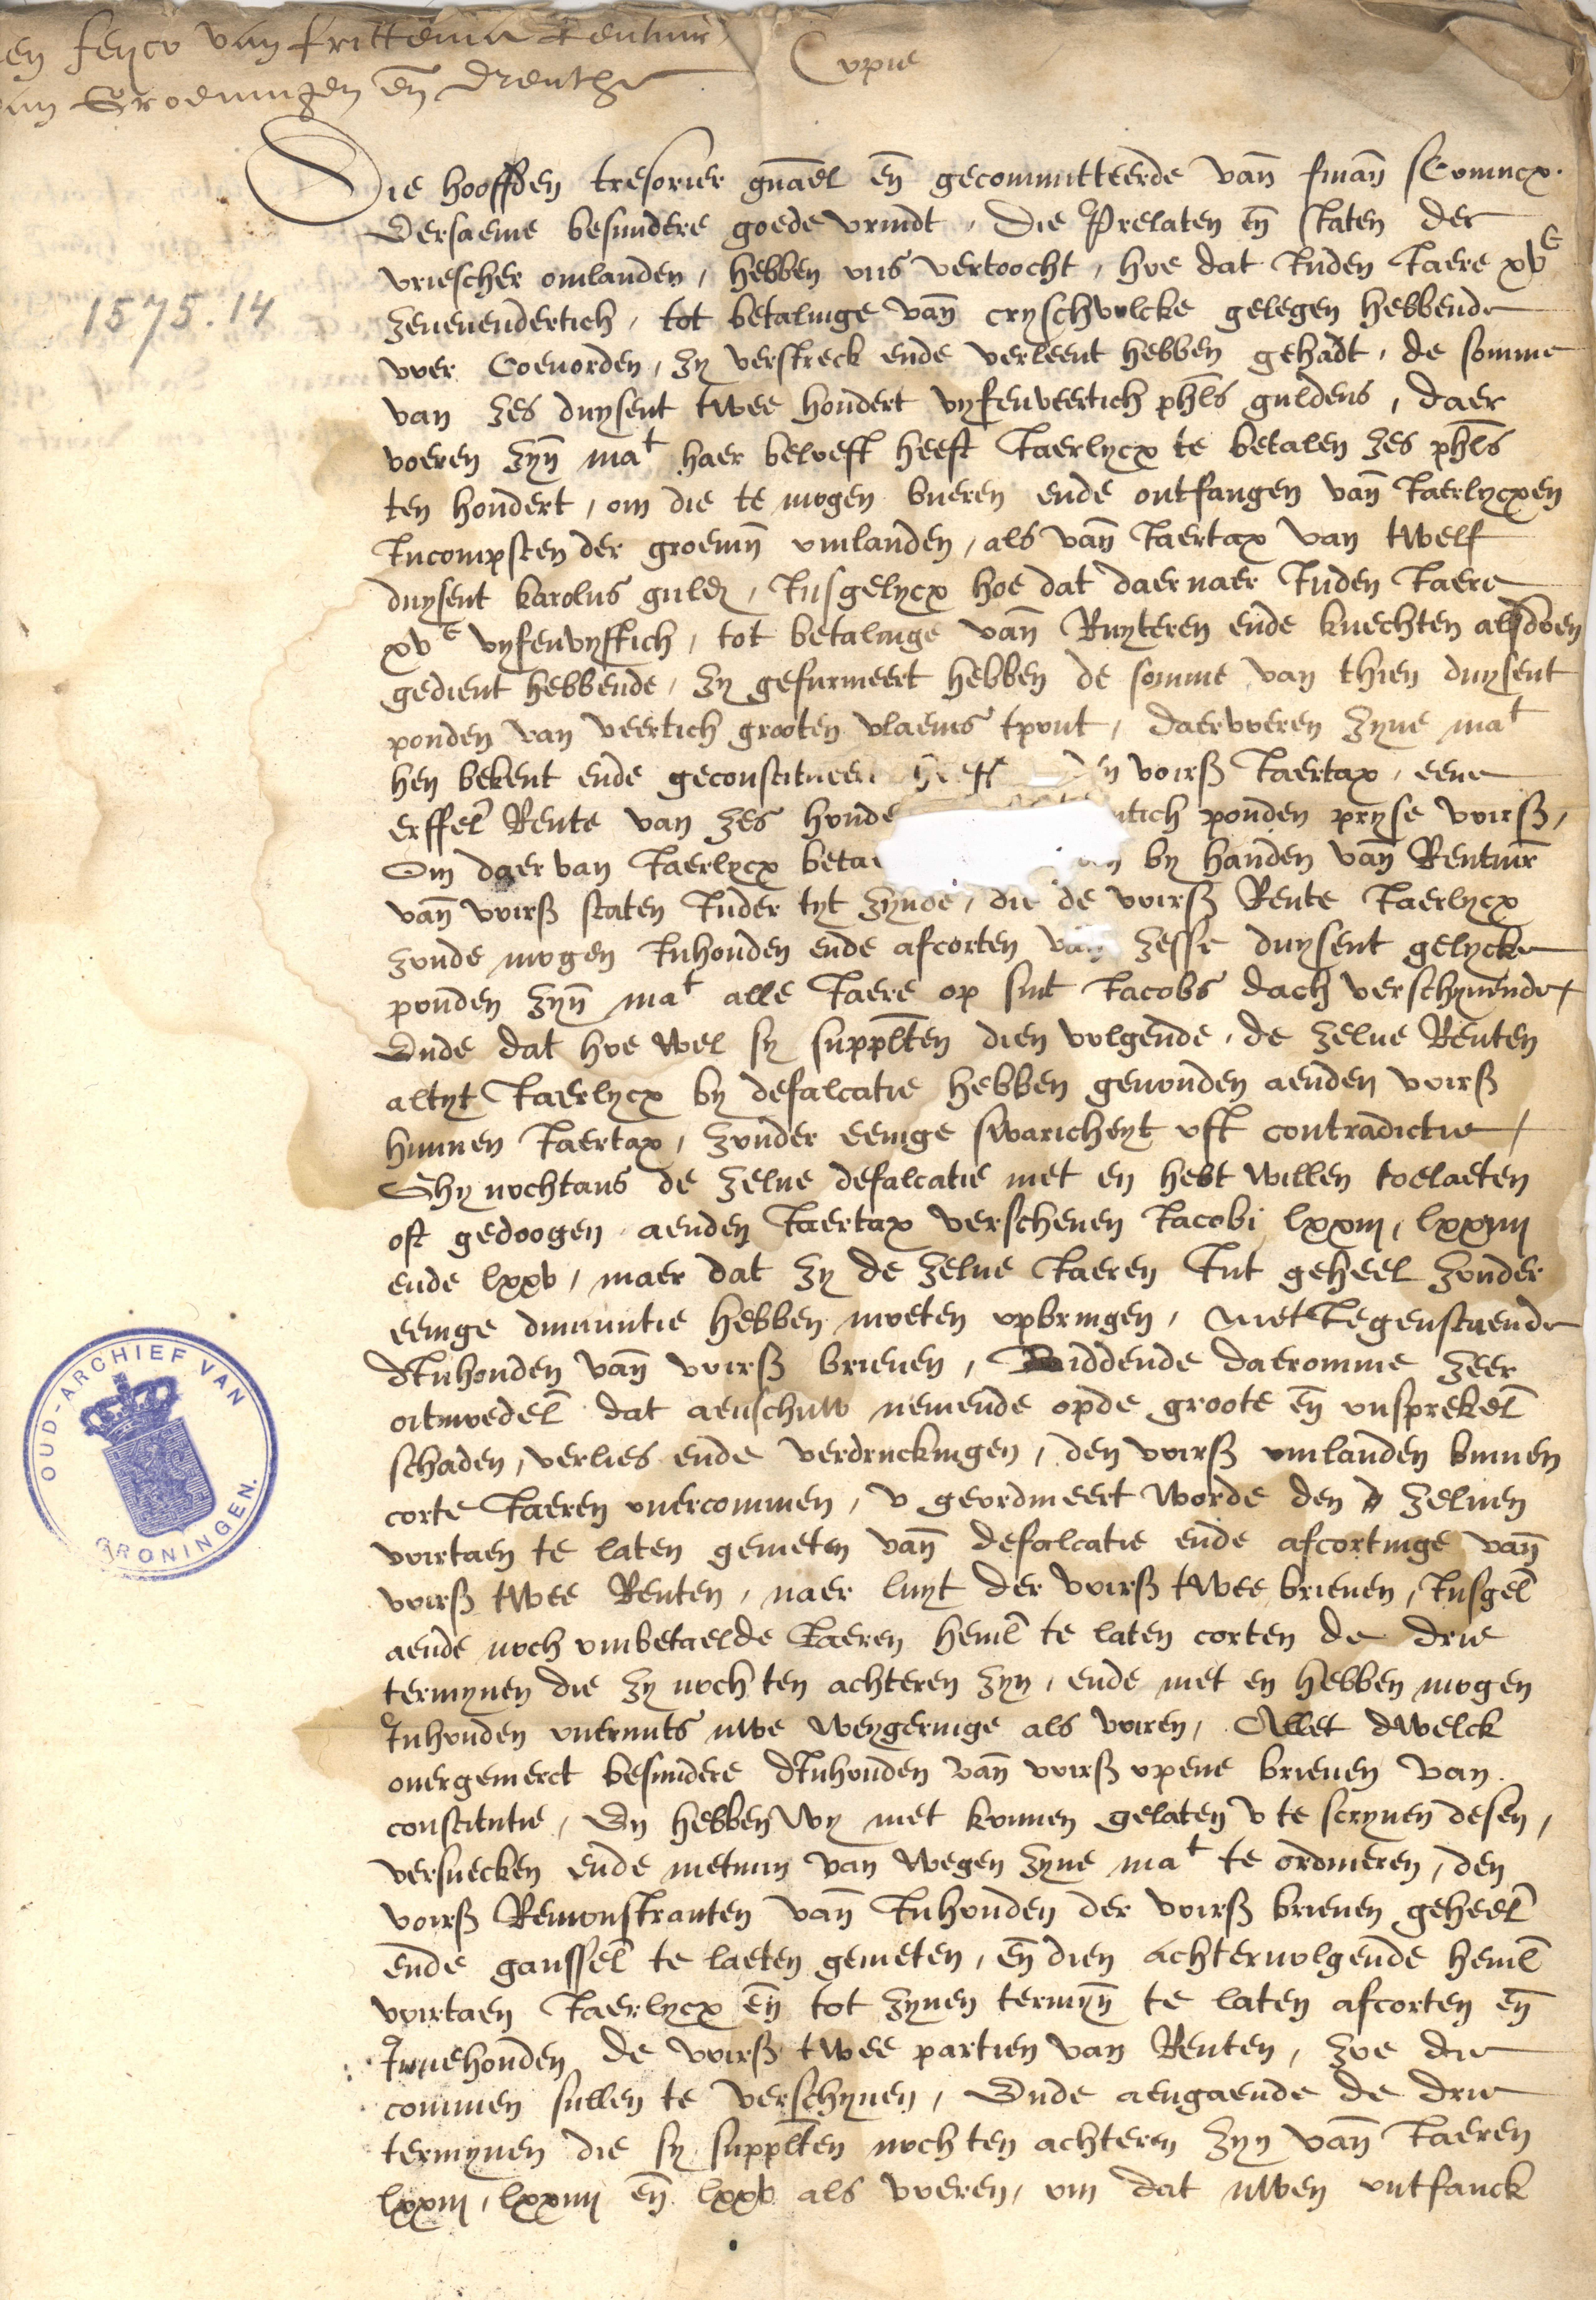 en feyco van frittema Rentmr
van Groeningen en̄ Drenthe
Copie
1575.14
Die hooffden tresorier gnāel en̄ gecommitteerde van̄ finan̄ sConincx.
Eersaeme besundere goede vrindt, Die Prelaten en̄ staten der
vriescher omlanden, hebben ons vertoocht, hoe dat Inden Iaere xvc
zeuenendertich, tot betalinge van̄ cryschvolcke gelegen hebbende
voer Coeuorden, zy verstreck ende verleent hebben gehadt, de somme
van zes duysent twee hondert vyfenveertich phls guldens, daer
voeren zyn̄ mat haer beloeft heeft Iaerlycx te betalen zes phls
ten hondert, om die te mogen bueren ende ontfangen van̄ Iaerlycxen
Incompsten der groenin̄ omlanden, als van̄ Iaertax van twelf
duysent karolus guld, Insgelycx hoe dat daer naer Inden Iaere
xvc vyfenvyftich, tot betalinge van̄ Ruyteren ende knechten alsdoen
gedient hebbende, zy gefurneert hebben de somme van thien duysent
ponden van veertich grooten vlaems tpont, daervoeren zyne mat
hen bekent ende geconstitueert heeft den voirß Iaertax, eene
erffel Rente van zes honde tich ponden pryse voirß,
Om daer van Iaerlycx betae by handen van̄ Rentmr
van̄ voirß staten Inder tyt zynde, die de voirß Rente Iaerlycx
zoude mogen Inhouden ende afcorten van zesse duysent gelycke
ponden zyn̄ mat alle Iaere op sint Iacobs dach verschynende,
Ende dat hoe wel sy supplten dien volgende, de zelue Renten
altyt Iaerlycx by defalcatie hebben geuonden aenden voirß
hunnen Iaertax, zonder eenige swaricheyt oft contradictie,
Ghy nochtans de zelue defalcatie niet en hebt willen toelaeten
oft gedoogen aenden Iaertax verschenen Iacobi lxxiij, lxxiiij
ende lxxv, maer dat zy de zelue Iaeren Int geheel zonder
eenige diminutie hebben moeten opbringen, niet tegenstaende
dInhouden van̄ voirß brieuen, Biddende daeromme zeer
oitmoedel dat aenschuw nemende opde groote en̄ onsprekel
schaden, verlies ende verdruckingen, den voirß omlanden binnen
corte Iaeren ouercommen, v geordineert worde den zeluen
voirtaen te laten genieten van̄ defalcatie ende afcortinge van̄
voirß twee Renten, naer luyt der voirß twee brieuen, Insgel
aende noch onbetaelde Iaeren heml te laten corten de drie
termynen die zy noch ten achteren zyn, ende niet en hebben mogen
Inhouden ouermits uwe weygeringe als voren, Allet dwelck
ouergemerct besundere dInhouden van̄ voirß opene brieuen van
constitutie, En hebben wy niet konnen gelaten v te scryuen desen,
versuecken ende nietmin van wegen zyne mat te ordineren, den
voirß Remonstranten van̄ Inhouden der voirß brieuen geheel
ende ganssel te laeten genieten, en̄ dien achteruolgende heml
voirtaen Iaerlycx en̄ tot zynen termyn̄ te laten afcorten en̄
Innehouden de voirß twee partien van Renten, zoe die
commen sullen te verschynen, Ende aengaende de drie
termynen die sy supplten noch ten achteren zyn van̄ Iaeren
lxxiij, lxxiiij en̄ lxxv als voeren, om dat uwen ontfanck
OUD-ARCHIEF VAN GRONINGEN.